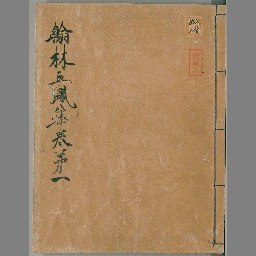 翰林五鳳集卷第一